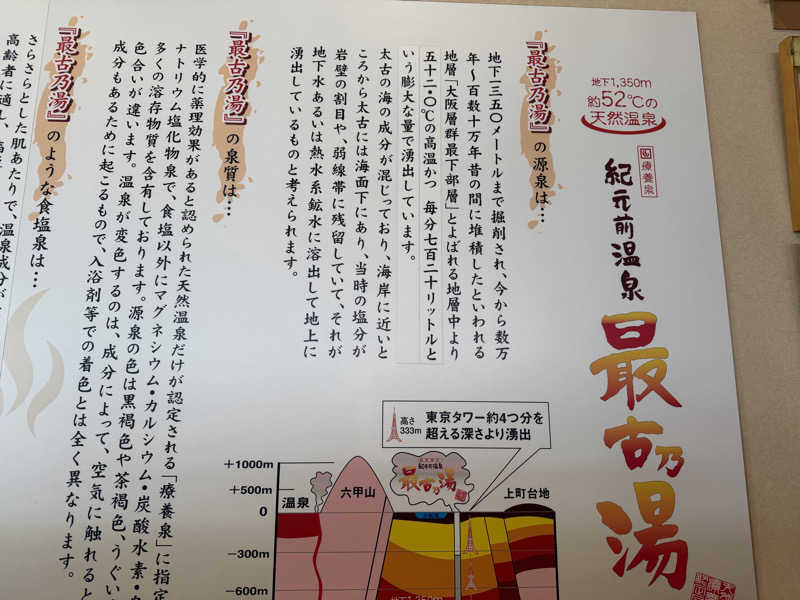 地下1,350m
約52℃の
天然温泉
療養泉
紀元前温泉
最古乃湯
『最古乃湯』の源泉は…
地下一三五〇メートルまで掘削され、今から数万
年〜百数十万年昔の間に堆積したといわれる
地層「大阪層群最下部層」とよばれる地層中より
五十二・〇℃の高温かつ 毎分七百二十リットルと
いう膨大な量で湧出しています。
太古の海の成分が混じっており、海岸に近いと
ころから太古には海面下にあり、当時の塩分が
岩壁の割目や、弱線帯に残留していて、それが
地下水あるいは熱水系鉱水に溶出して地上に
湧出しているものと考えられます。
『最古乃湯』の泉質は…
医学的に薬理効果があると認められた天然温泉だけが認定される「療養泉」に指定
ナトリウム塩化物泉で、食塩以外にマグネシウム・カルシウム・炭酸水素・
多くの溶存物質を含有しております。源泉の色は黒褐色や茶褐色、うぐい
色合いが違います。温泉が変色するのは、成分によって、空気に触れると
成分もあるために起こるもので、入浴剤等での着色とは全く異なります。
『最古乃湯』のような食塩泉は…
さらさらとした肌あたりで、温泉成分が
高齢者に適し、
高さ
333m
東京タワー約4つ分を
超える深さより湧出
+1000m
+500m
0
−300m
−600m
温泉
六甲山
紀元前温泉
最古乃湯
上町台地
地下1,350m